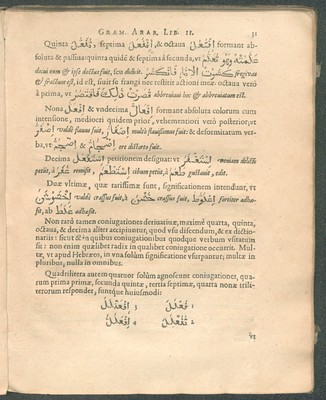 GRÆM. ARAB. LIB. II. 31
Quinta تَفَعَّلَ, septima اِنْفَعَلَ, & octaua اِفْتَعَلَ formant ab-
soluta & passiua: quinta quidẽ & septima à secunda, vt عَلَّمْتُهُ وَهُوَ تَعَلَّمَ
docui eum & ipse doctus fuit, seu didicit. كَسَّرْتُ الْآثَارَ فَانْكَسَرَ fregi vas
& fractum est, id est, suit se frangi nec restitit actioni meæ: octaua verò
à prima, vt قَصَرْتُ ذٰلِكَ فَاقْتَصَرَ abbreuiaui hoc & abbreuiatum est.
Nona اِفْعَلَّ & vndecima اِفْعَالَّ formant absoluta colorum cum
intensione, mediocri quidem prior, vehementiori verò posterior, vt
اِصْفَرَّ valdè flauus fuit, اِصْفَارَّ multò flauissimus fuit: & deformitatum ver-
ba, vt اِضْجَمَّ & اِضْجَامَّ ore distorto fuit.
Decima اِسْتَفْعَلَ petitionem designat: vt اِسْتَغْفَرَ veniam delicti
petiit, à غَفَرَ remisit, اِسْتَطْعَمَ cibum petiit, à طَعِمَ gustauit, edit.
Duæ vltimæ, quæ rarissimæ sunt, significationem intendunt, vt
اِخْشَوْشَنَ valdè crassus fuit, خَشُنَ crassus fuit, اِعْلَوَّطَ fortiter adhæ-
sit, ab عَلَطَ adhæsit.
Non rarò tamen coniugationes deriuatiuæ, maximè quarta, quinta,
octaua, & decima aliter accipiuntur, quod vsu discendum, & ex dictio-
nariis: sicut & in quibus coniugationibus quodque verbum vsitatum
sit: non enim quælibet radix in qualibet coniugatione occurrit. Mul-
tæ, vt apud Hebræos, in vna solùm significatione vsurpantur; multæ in
pluribus, nulla in omnibus.
Quadrilitera autem quatuor solùm agnoscunt coniugationes, qua-
rum prima primæ, secunda quintæ, tertia septimæ, quarta nonæ trili-
terorum respondet, suntque huiusmodi:
فَعْلَلَ 1 اِفْعَنْلَلَ 3
تَفَعْلَلَ 2 اِفْعَلَلَّ 4